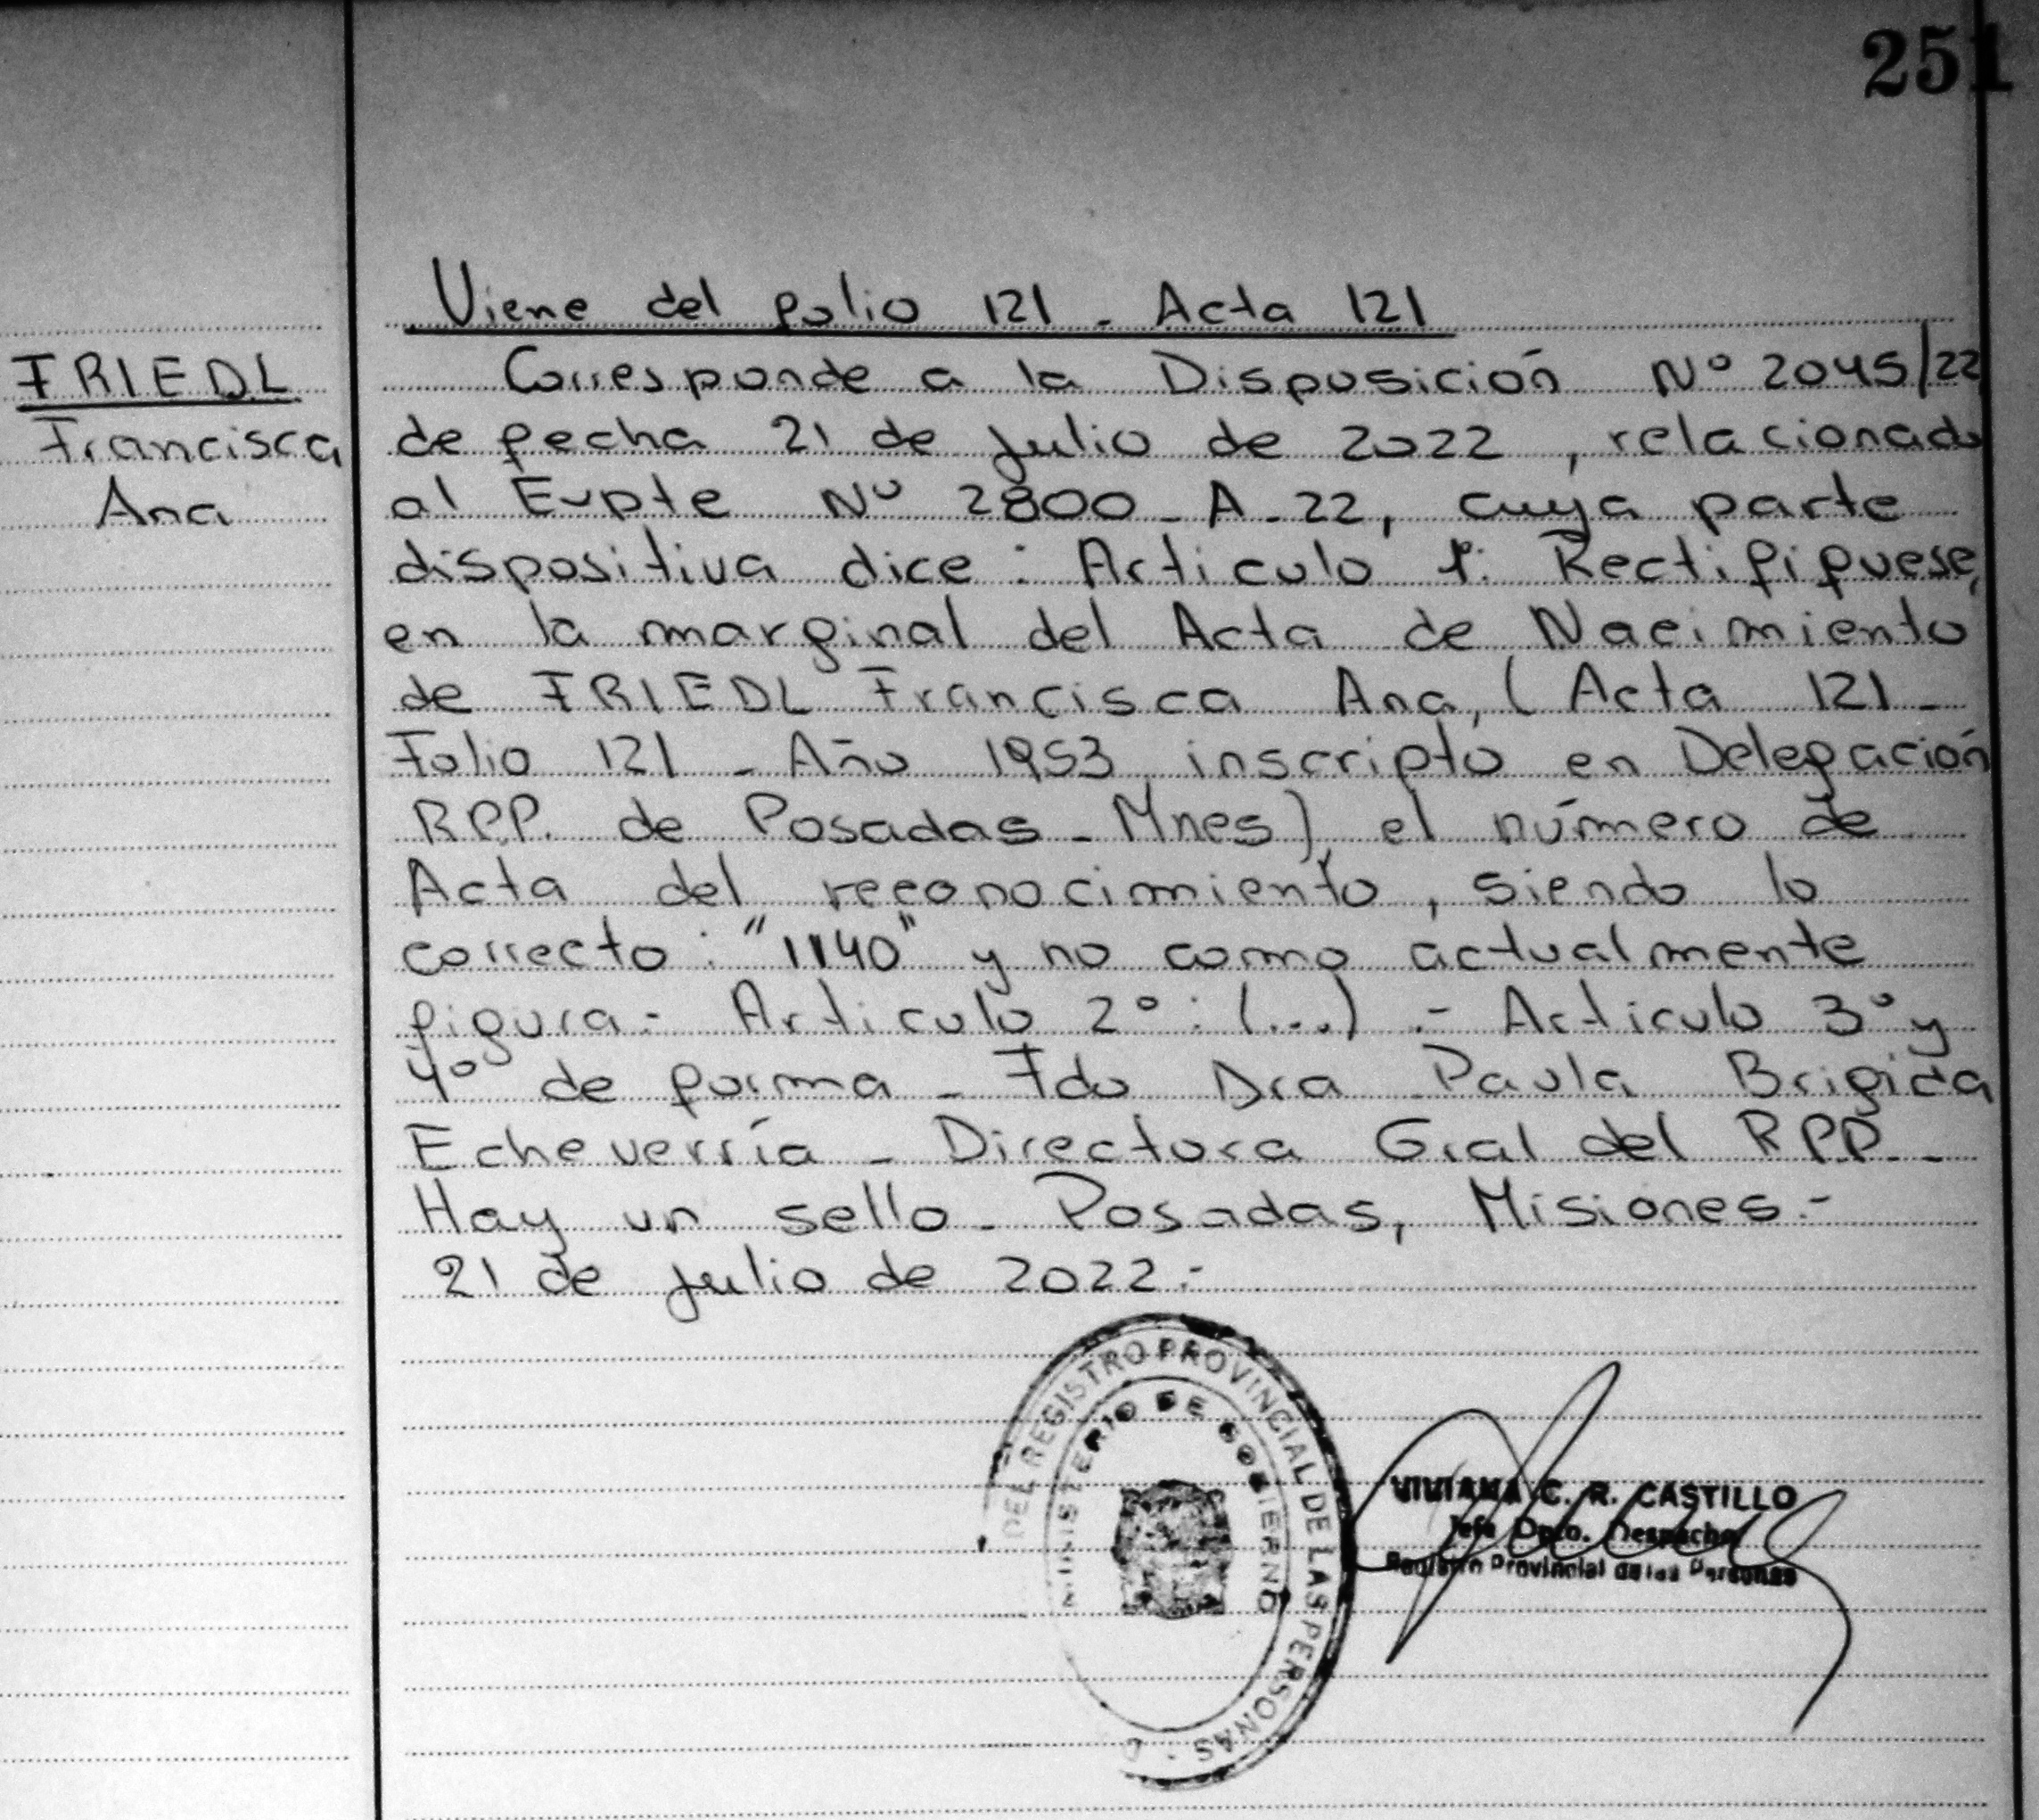 251
Viene del folio 121 - Acta 121
FRIEDL
Francisca
Ana
Corresponde a la Disposición Nº 2045/22
de fecha 21 de julio de 2022, relacionado
al Expte Nº 2800-A-22, cuya parte
dispositiva dice: Articulo 1: Rectifiquese,
en la marginal del Acta de Nacimiento
de FRIEDL Francisca Ana, (Acta 121-
Folio 121 - Año 1953 inscripto en Delegación
RPP. de Posadas - Mnes) el número de
Acta del reconocimiento, siendo lo
correcto: "1140" y no como actualmente
figura.- Articulo 2º: (...) .- Articulo 3º y
4º de forma - Fdo Dra Paula Brigida
Echeverría - Directora Gral del RPP -
Hay un sello - Posadas, Misiones.-
21 de julio de 2022.-
DEL REGISTRO PROVINCIAL DE LAS PERSONAS -
MINISTERIO DE GOBIERNO
VIVIANA C. R. CASTILLO
Jefa Dpto. Despacho
Registro Provincial de las Personas